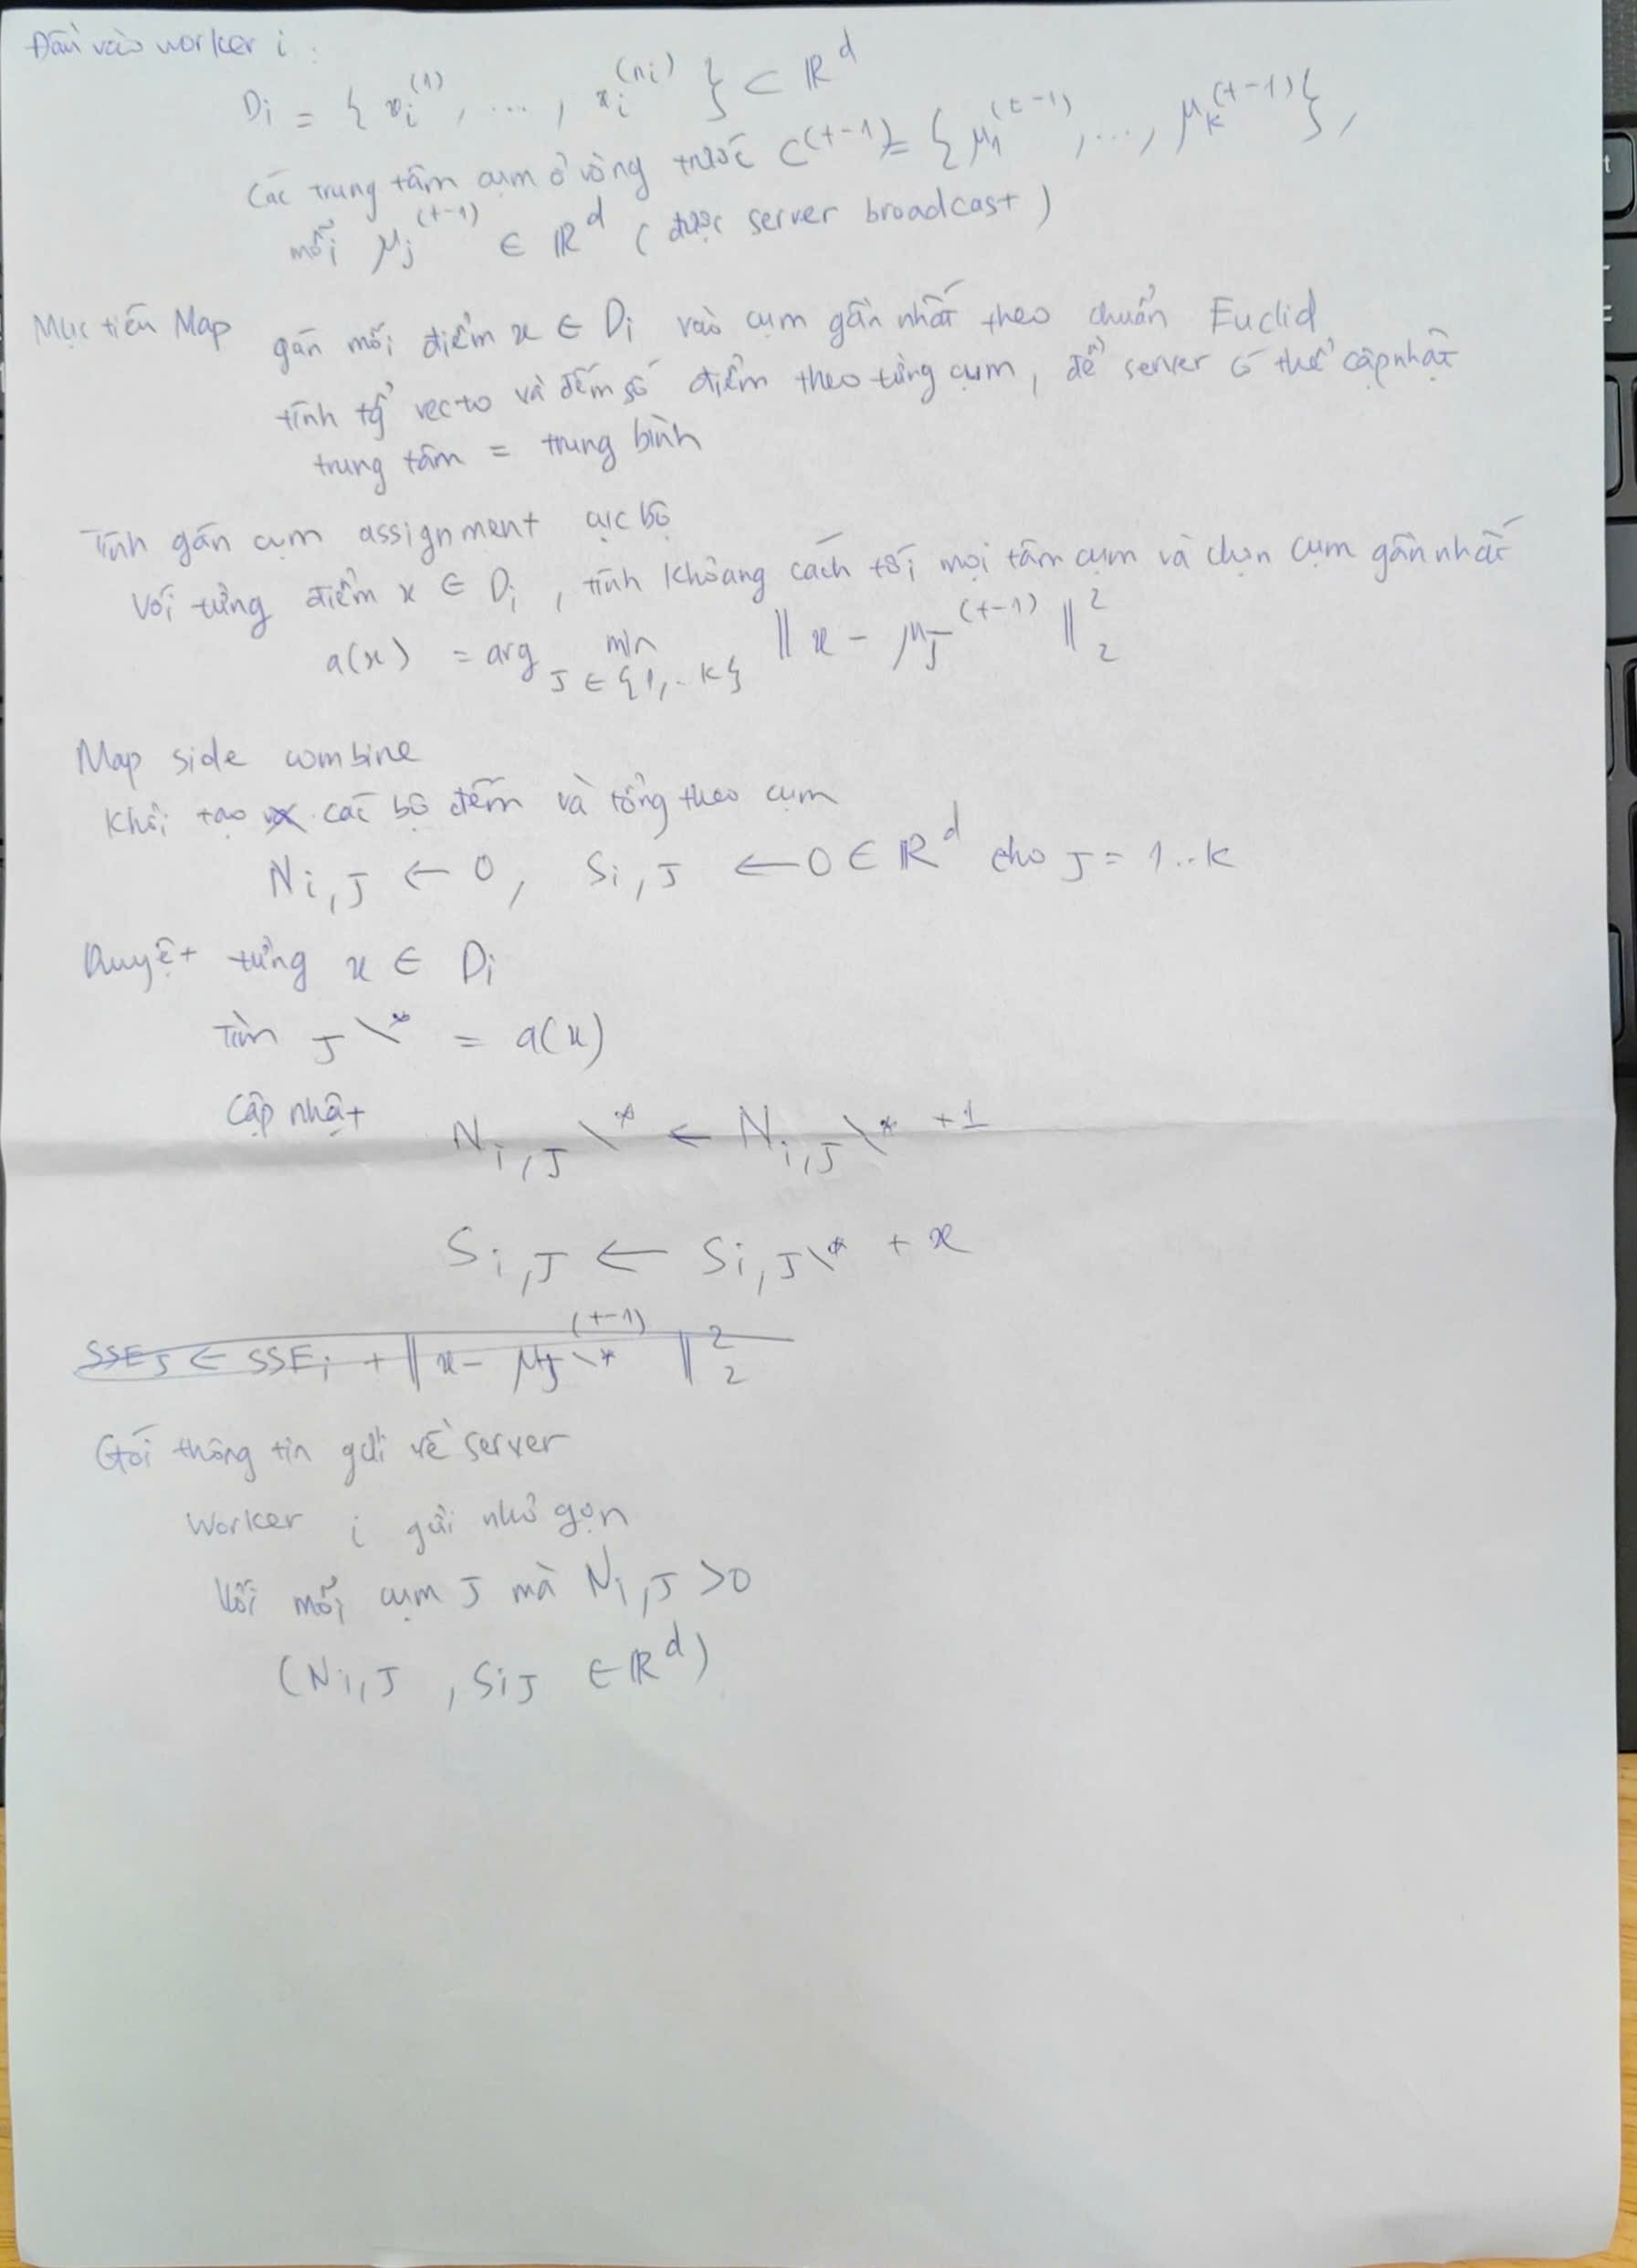 Đầu vào worker i :
Di = { x_i^(1), ..., x_i^(ni) } ⊂ ℝ^d
Các trung tâm cụm ở vòng trước C^(t-1) = { μ_1^(t-1), ..., μ_K^(t-1) },
mỗi μ_j^(t-1) ∈ ℝ^d ( được server broadcast )
Mục tiêu Map gán mỗi điểm x ∈ Di vào cụm gần nhất theo chuẩn Euclid
tính tổ vecto và đếm số điểm theo từng cụm, để server có thể cập nhật
trung tâm = trung bình
Tính gán cụm assignment cục bộ
Với từng điểm x ∈ Di, tính khoảng cách tới mọi tâm cụm và chọn cụm gần nhất
a(x) = arg min_{J ∈ {1,..K}} || x - μ_J^(t-1) ||_2^2
Map side combine
Khởi tạo các bộ đếm và tổng theo cụm
Ni,J ← 0, Si,J ← 0 ∈ ℝ^d cho J = 1..K
Duyệt từng x ∈ Di
Tìm J\* = a(x)
Cập nhật Ni,J\* ← Ni,J\* +1
Si,J ← Si,J\* + x
SSEJ ← SSEi + || x - μJ\*^(t-1) ||_2^2
Gói thông tin gửi về server
Worker i gửi nhỏ gọn
Với mỗi cụm J mà Ni,J >0
(Ni,J , SiJ ∈ ℝ^d)